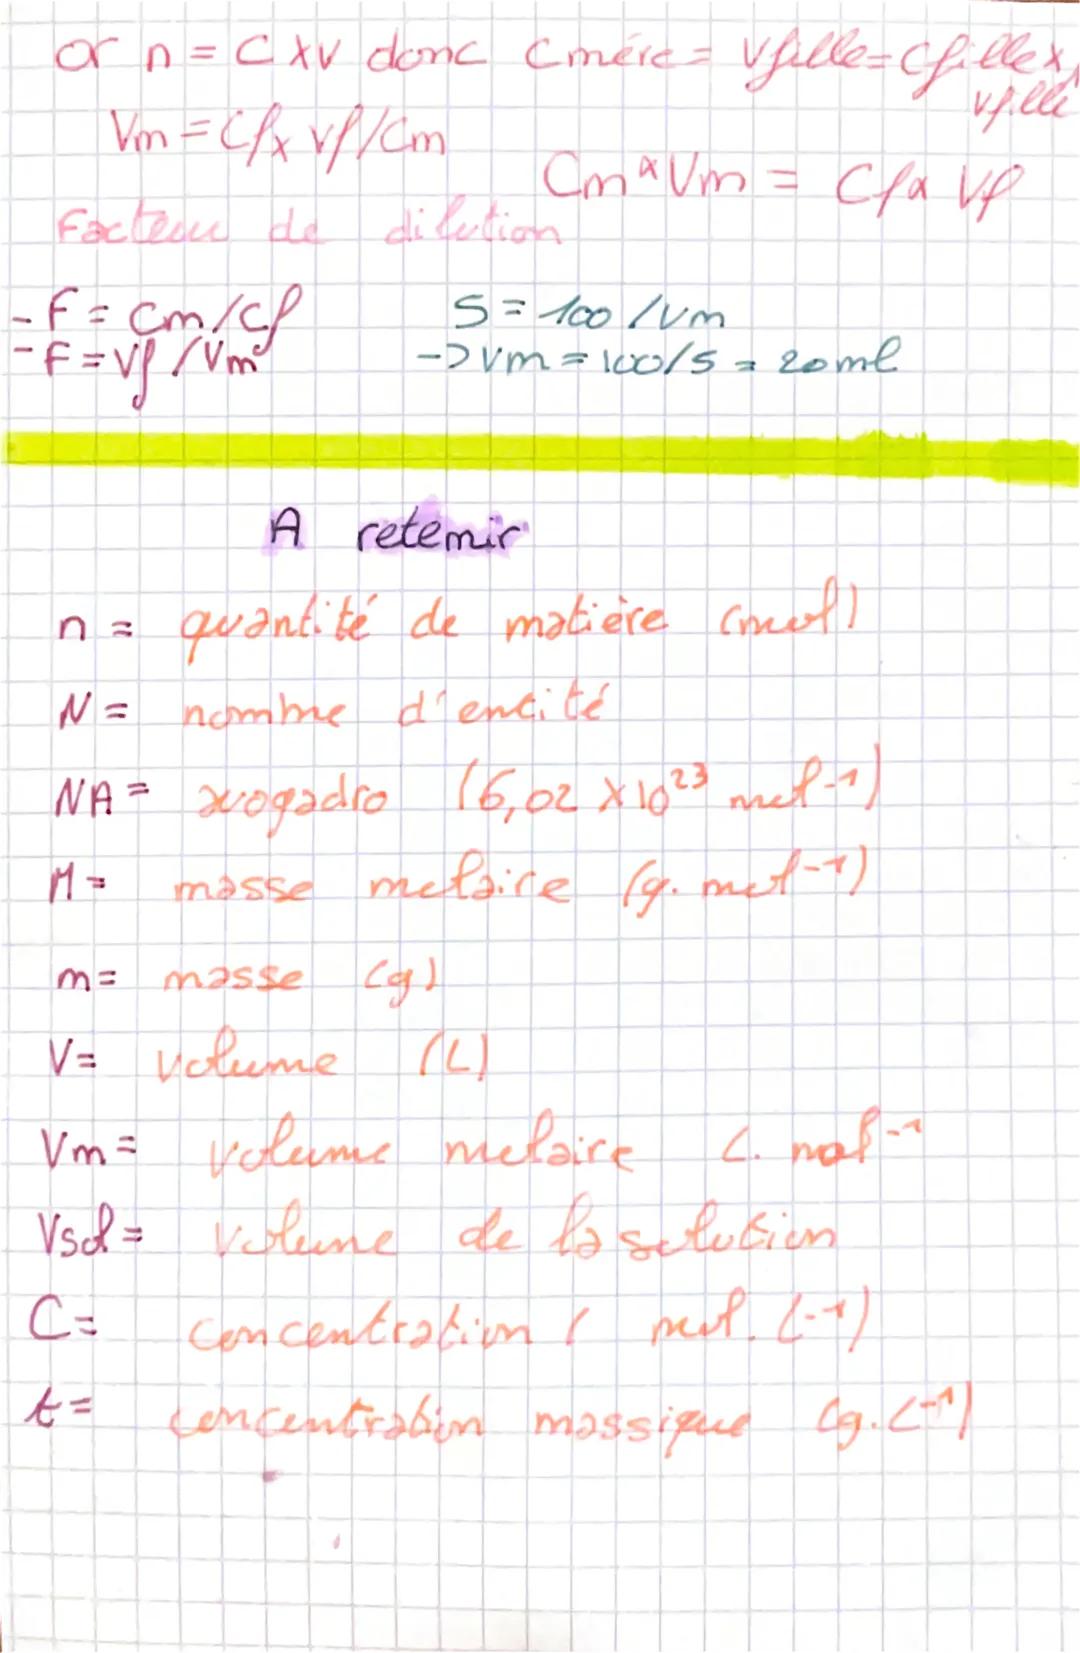 or n = C x V donc Cmére = Vfille = Cfille x
Vfille
Vm = Cf x Vf / Cm
Cm x Vm = Cf x Vf
Facteur de dilution
- F = Cm / Cf
5 = 100 / Vm
- F = Vf / Vm
-> Vm = 100/5 = 20 ml
A retenir
n = quantité de matière (mol)
N = nombre d'entité
NA = avogadro (6,02 x 10²³ mol-¹)
M = masse molaire (g. mol-¹)
m = masse (g)
V = volume (L)
Vm = volume molaire L. mol-¹
Vsol = volume de la solution
C = concentration ( mol. L-¹)
t = concentration massique (g. L-¹)